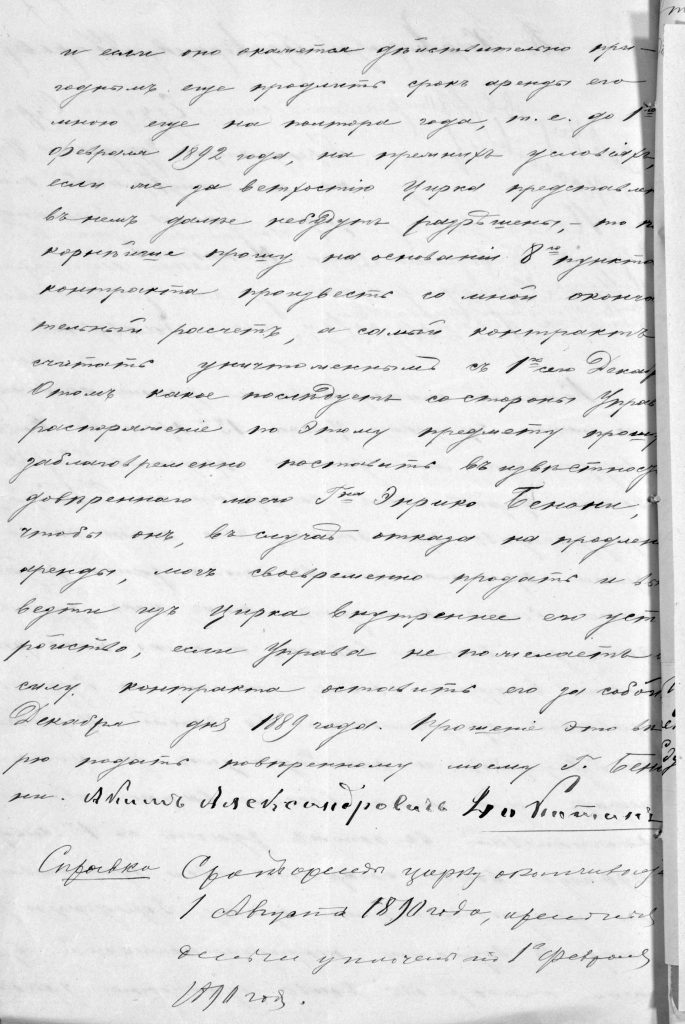 и если оно окажется дѣйствительно при-
годнымъ еще продлить срокъ аренды его
мною еще на полтора года, т. е. до 1го
Февраля 1892 года, на прежнихъ условіяхъ,
если же за ветхостію Цирка представле
въ немъ далѣе небудутъ разрѣшены, - то по
корнѣйше прошу на основаніи 8го пункта
контракта произвесть со мной оконча
тельный расчетъ, а самый контрактъ
считать уничтоженнымъ съ 1го сего Декаб
Отомъ какое послѣдуетъ состороны Управ
распоряженіе по этому предмету прошу
заблаговременно поставить въ извѣстнос
довѣреннаго моего Гна Энрико Бенони,
чтобы онъ, въ случаѣ отказа на продлен
аренды, могъ своевременно продать и вы
везти изъ цирка внутреннее его уст
ройство, если Управа не пожелаетъ
силу контракта оставить его за собой
Декабря дня 1889 года. Прошеніе это вѣ
рю подать повѣренному моему Г. Бено
ни. Акимъ Александровичъ
Справка Срокъ аренды цирку оканчивает
1 Августа 1890 года, арендныя
деньги уплачены по 1е Февраля
1890 год.